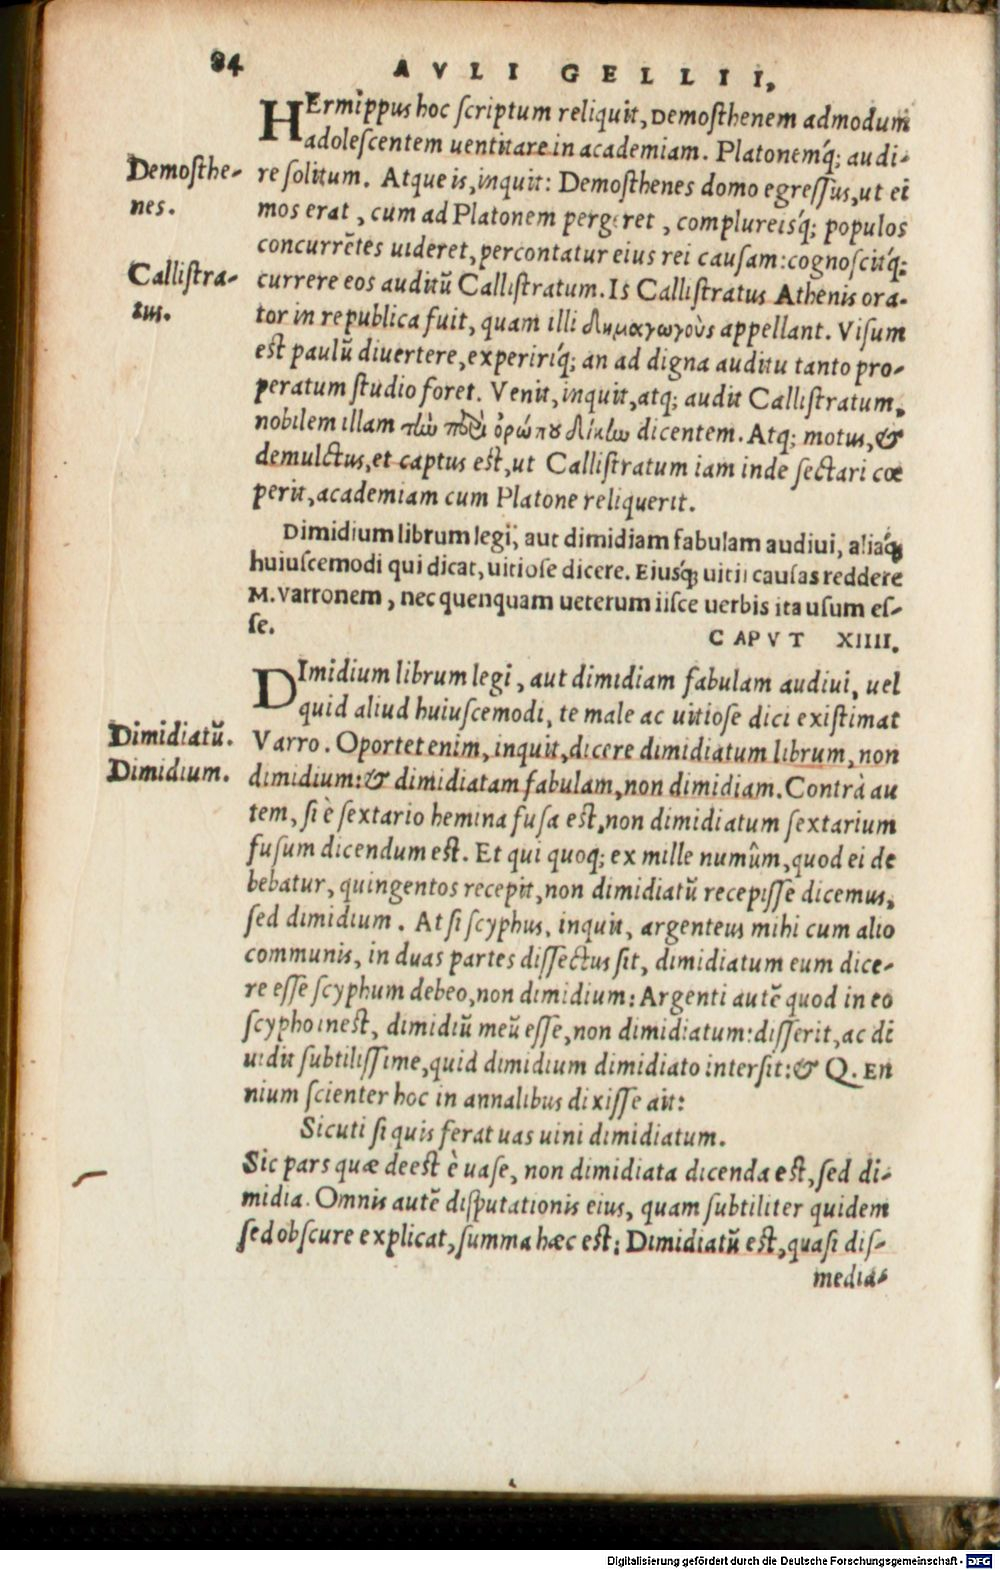 84
AVLI GELLII,
HErmippus hoc ſcriptum reliquit, Demoſthenem admodum
adoleſcentem uentitare in academiam. Platonemq́; audi-
Demoſthe-
nes.
re ſolitum. Atque is, inquit: Demoſthenes domo egreſſus, ut ei
mos erat, cum ad Platonem pergeret, complureisq́; populos
concurrētes uideret, percontatur eius rei cauſam: cognoſcitq́;
Calliſtra-
tus.
currere eos auditū Calliſtratum. Is Calliſtratus Athenis ora-
tor in republica fuit, quam illi δημαγωγοὺς appellant. Viſum
eſt paulū diuertere, expeririq́; an ad digna auditu tanto pro-
peratum ſtudio foret. Venit, inquit, atq; audit Calliſtratum,
nobilem illam τὼ πὶ ὀρώπου δίκω dicentem. Atq; motus, &
demulctus, et captus eſt, ut Calliſtratum iam inde ſectari cœ
perit, academiam cum Platone reliquerit.
Dimidium librum legi, aut dimidiam fabulam audiui, aliaq́;
huiuſcemodi qui dicat, uitioſe dicere. Eiusq́; uitii cauſas reddere
M. Varronem, nec quenquam ueterum iiſce uerbis ita uſum eſ-
ſe.
CAPVT XIIII.
DImidium librum legi, aut dimidiam fabulam audiui, uel
quid aliud huiuſcemodi, te male ac uitioſe dici exiſtimat
Dimidiatū.
Varro. Oportet enim, inquit, dicere dimidiatum librum, non
Dimidium.
dimidium: & dimidiatam fabulam, non dimidiam. Contrà au
tem, ſi è ſextario hemina fuſa eſt, non dimidiatum ſextarium
fuſum dicendum eſt. Et qui quoq; ex mille numûm, quod ei de
bebatur, quingentos recepit, non dimidiatū recepiſſe dicemus,
ſed dimidium. At ſi ſcyphus, inquit, argenteus mihi cum alio
communis, in duas partes diſſectus ſit, dimidiatum eum dice-
re eſſe ſcyphum debeo, non dimidium: Argenti autē quod in eo
ſcypho ineſt, dimidiū meū eſſe, non dimidiatum: diſſerit, ac di
uidit ſubtiliſſime, quid dimidium dimidiato interſit: & Q. En
nium ſcienter hoc in annalibus dixiſſe ait:
Sicuti ſi quis ferat uas uini dimidiatum.
Sic pars quæ deeſt è uaſe, non dimidiata dicenda eſt, ſed di-
midia. Omnis autē diſputationis eius, quam ſubtiliter quidem
ſed obſcure explicat, ſumma hæc eſt: Dimidiatū eſt, quaſi diſ-
media-
Digitalisierung gefördert durch die Deutsche Forschungsgemeinschaft - DFG